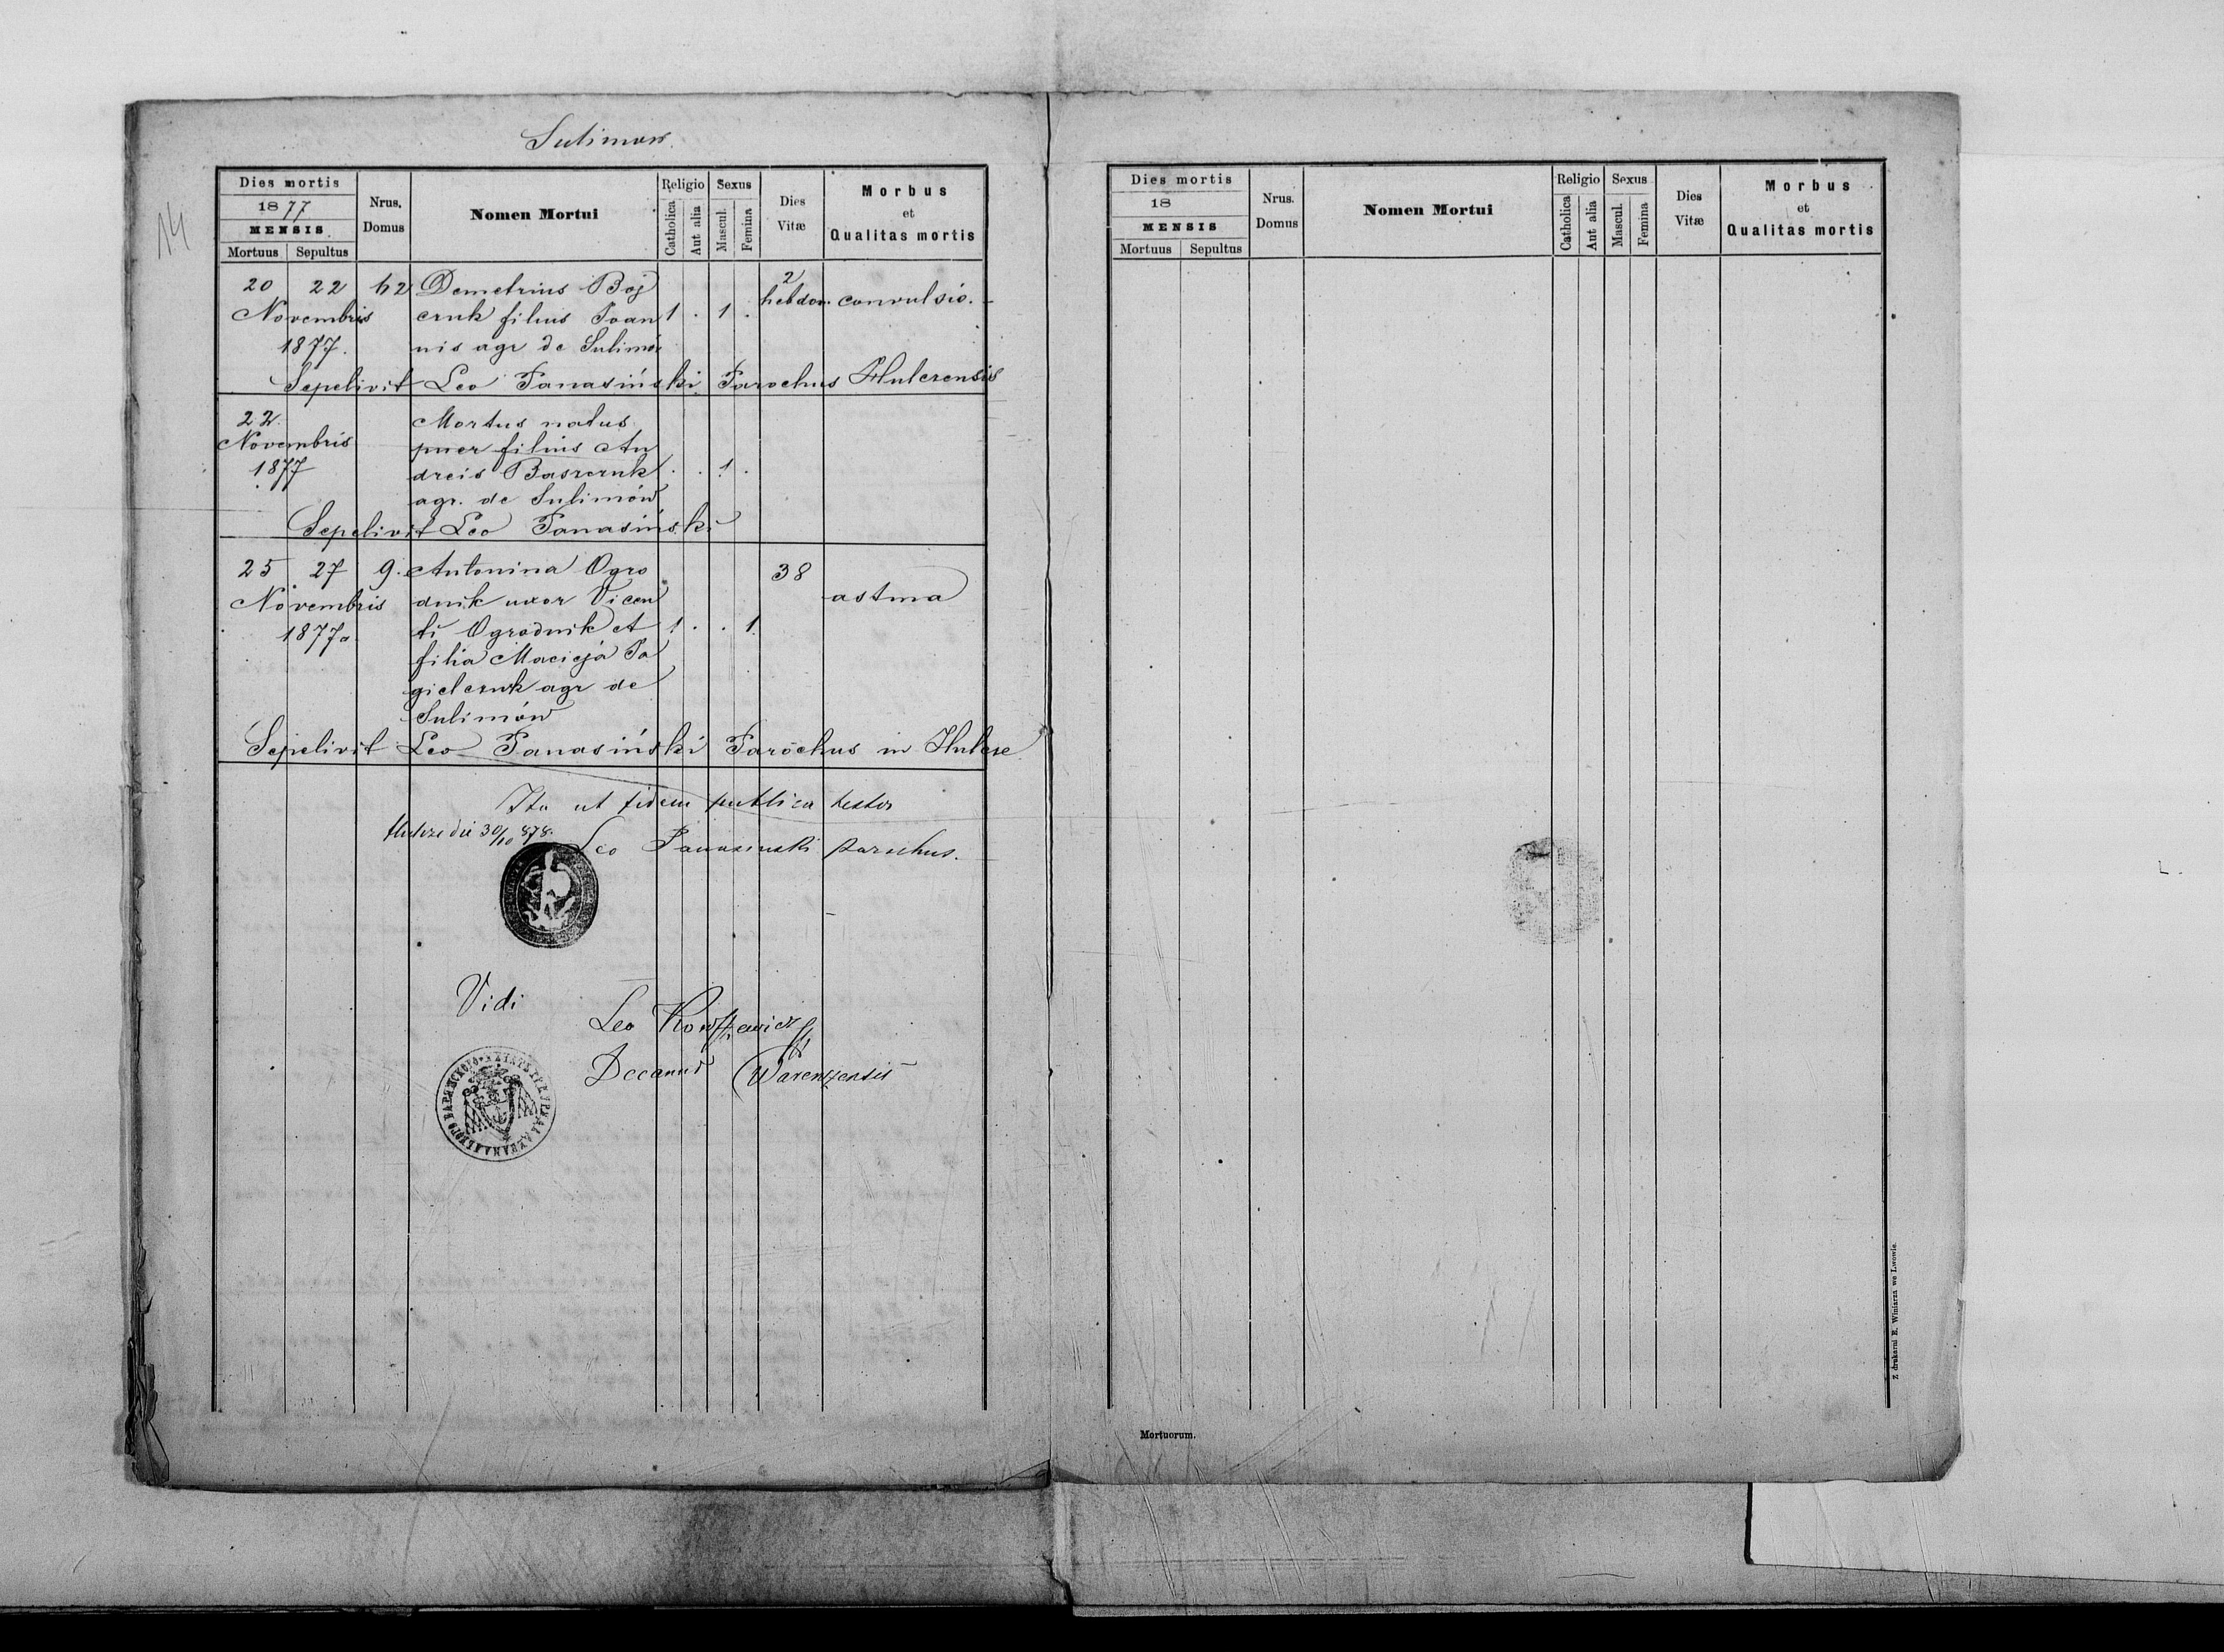 14
Sulimow.
Dies mortis
1877
MENSIS
Mortuus Sepultus
Nrus. Domus
Nomen Mortui
Religio
Catholica
Aut alia
Sexus
Mascul.
Femina
Dies Vitæ
Morbus
et
Qualitas mortis
20 22 62 Demetrius Boj
Novembris czuk filius Joan 1 . 1 . 2 hebdom. convulsio.
1877. nis agr de Sulimów
Sepelivit Leo Panasiński Parochus Hulczensis
22 Mortus natus
Novembris puer filius An
1877 dreis Baszczuk . . 1 .
agr. de Sulimów
Sepelivit Leo Panasiński
25 27 9. Antonina Ogro 38
Novembris dnik uxor Vicen astma
1877. ti Ogrodnik et 1 . . 1
filia Macieja Ja
gielczuk agr de
Sulimów
Sepelivit Leo Panasiński Parochus in Hulcze
Ita ut fidem publica testor
Hulcze die 30/10 878.
Leo Panasinski parochus.
Vidi
Leo
Decanus Warenzensis
Dies mortis
18
MENSIS
Mortuus Sepultus
Nrus. Domus
Nomen Mortui
Religio
Catholica
Aut alia
Sexus
Mascul.
Femina
Dies Vitæ
Morbus
et
Qualitas mortis
Mortuorum.
Z drukarni E. Winiarza we Lwowie.